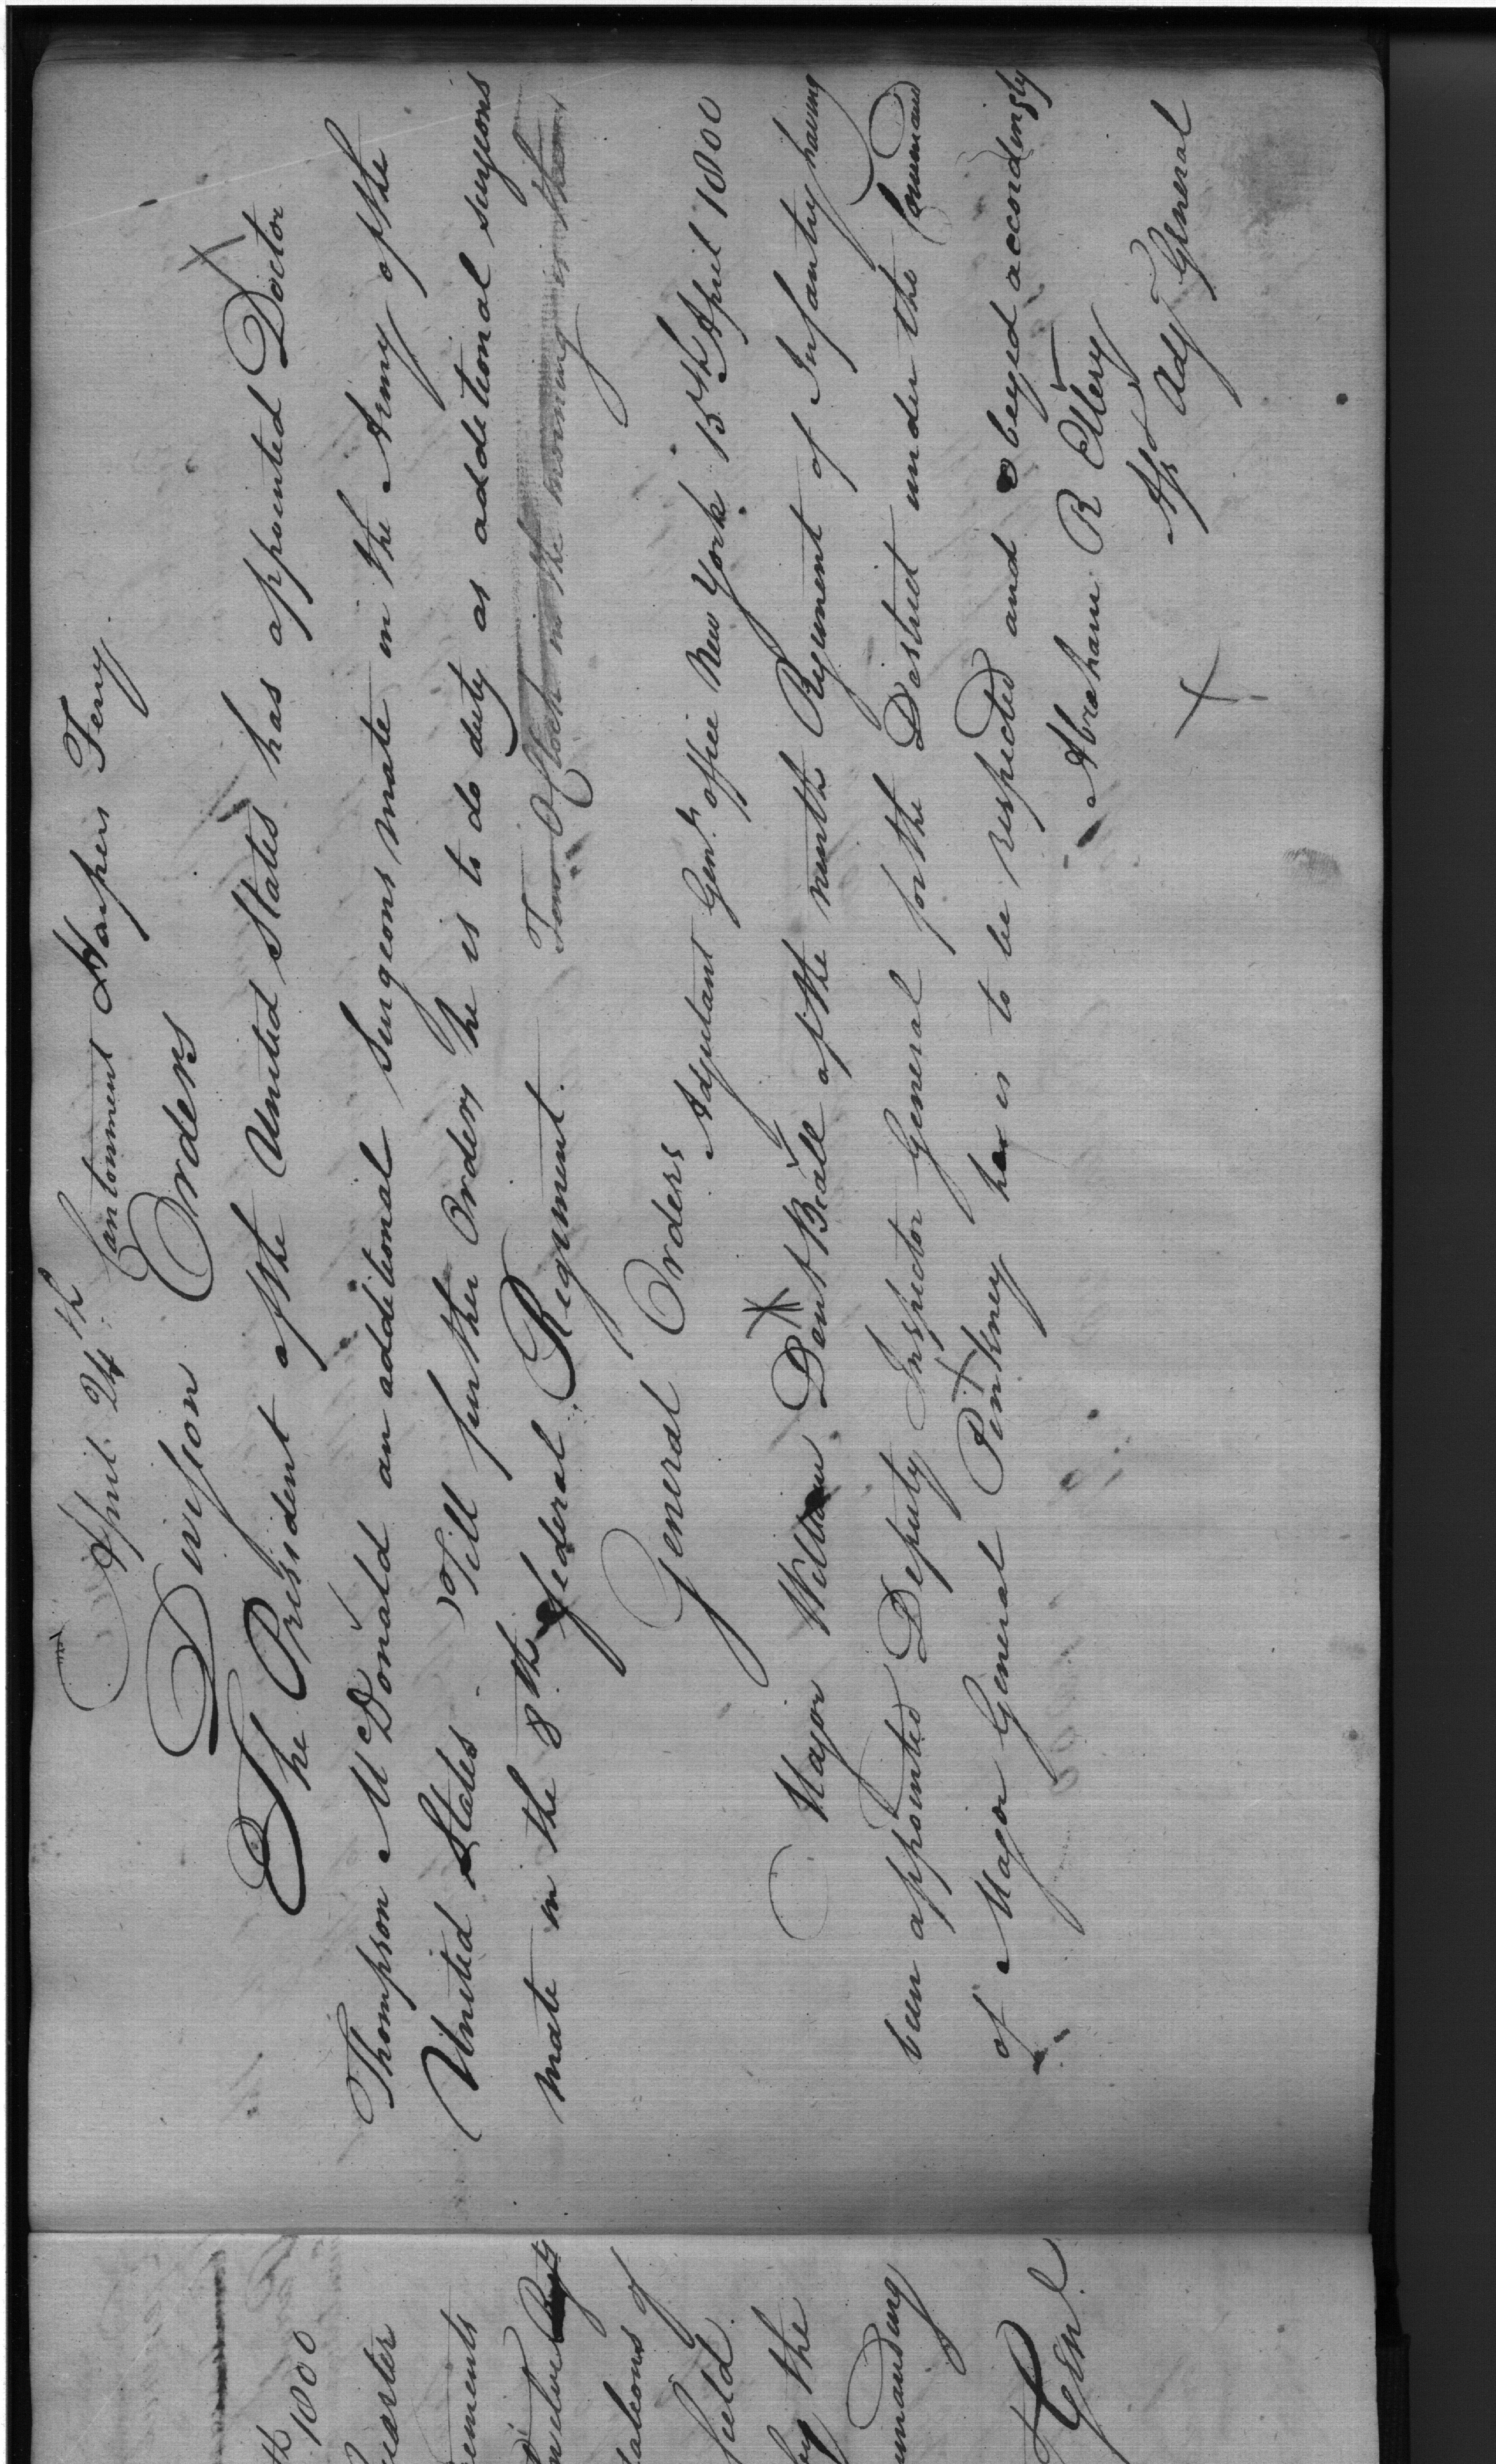 April 24th Cantonment Harpers Ferry.
Division Orders
The President of the United States has appointed Doctor
Thompson McDonald an additional Surgeons mate in the Army of the
United States - Till further Orders he is to do duty as additional surgeons
mate in the 8th federal Regiment.
General Orders
Adjutant Genls office New York 15th April 1800
Major William Dent Beall of the ninth Regiment of Infantry having
been appointed Deputy Inspector General for the District under the Command
of Major General Pinkney he is to be respected and obeyed accordingly
Abraham R Ellery
Asst Adjt General
th 1800
ements
field
by the
manding
Genl